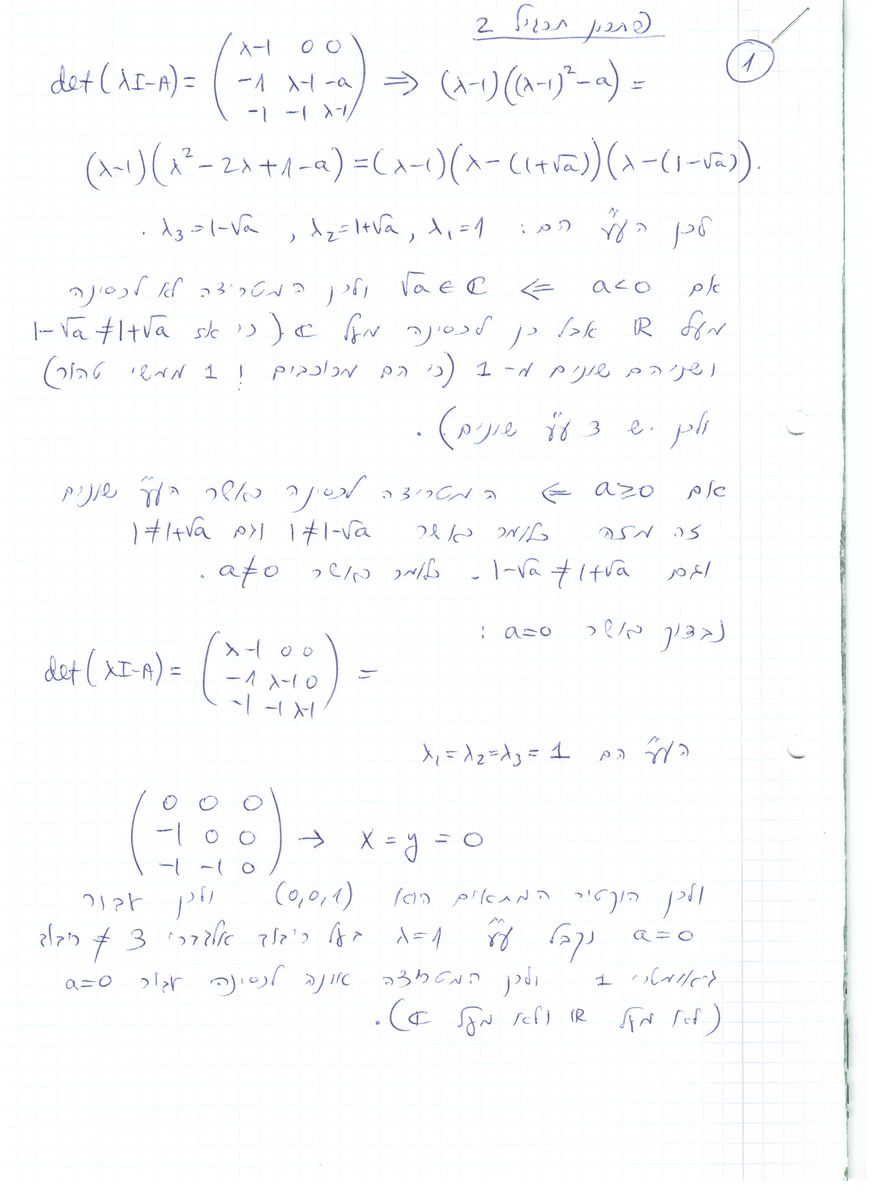 פתרון תרגיל 2
1
det(λI-A) = (λ-1 0 0
-1 λ-1 -a
-1 -1 λ-1) ⇒ (λ-1)((λ-1)² - a) =
(λ-1)(λ² - 2λ + 1 - a) = (λ-1)(λ - (1+√a))(λ - (1-√a)).
לכן הע"ע הם: λ₁=1 , λ₂=1+√a , λ₃=1-√a .
אם a<0 ⇐ √a ∈ ℂ ולכן המטריצה לא לכסינה
מעל ℝ אבל כן לכסינה מעל ℂ (כי אז 1-√a ≠ 1+√a
ושניהם שונים מ-1 (כי הם מרוכבים ! 1 ממשי טהור)
ולכן יש 3 ע"ע שונים).
אם a≥0 ⇐ המטריצה לכסינה כאשר הע"ע שונים
זה מזה כלומר כאשר 1≠1-√a וגם 1≠1+√a
וגם 1-√a ≠ 1+√a. כלומר כאשר a≠0.
נבדוק כאשר a=0 :
det(λI-A) = (λ-1 0 0
-1 λ-1 0
-1 -1 λ-1) =
הע"ע הם λ₁=λ₂=λ₃= 1
(0 0 0
-1 0 0
-1 -1 0) → x = y = 0
ולכן הוקטור המתאים הוא (0,0,1) ולכן עבור
a=0 נקבל ע"ע λ=1 בעל ריבוב אלגברי 3 ≠ ריבוב
גיאומטרי 1 ולכן המטריצה אינה לכסינה עבור a=0
(לא מעל ℝ ולא מעל ℂ).